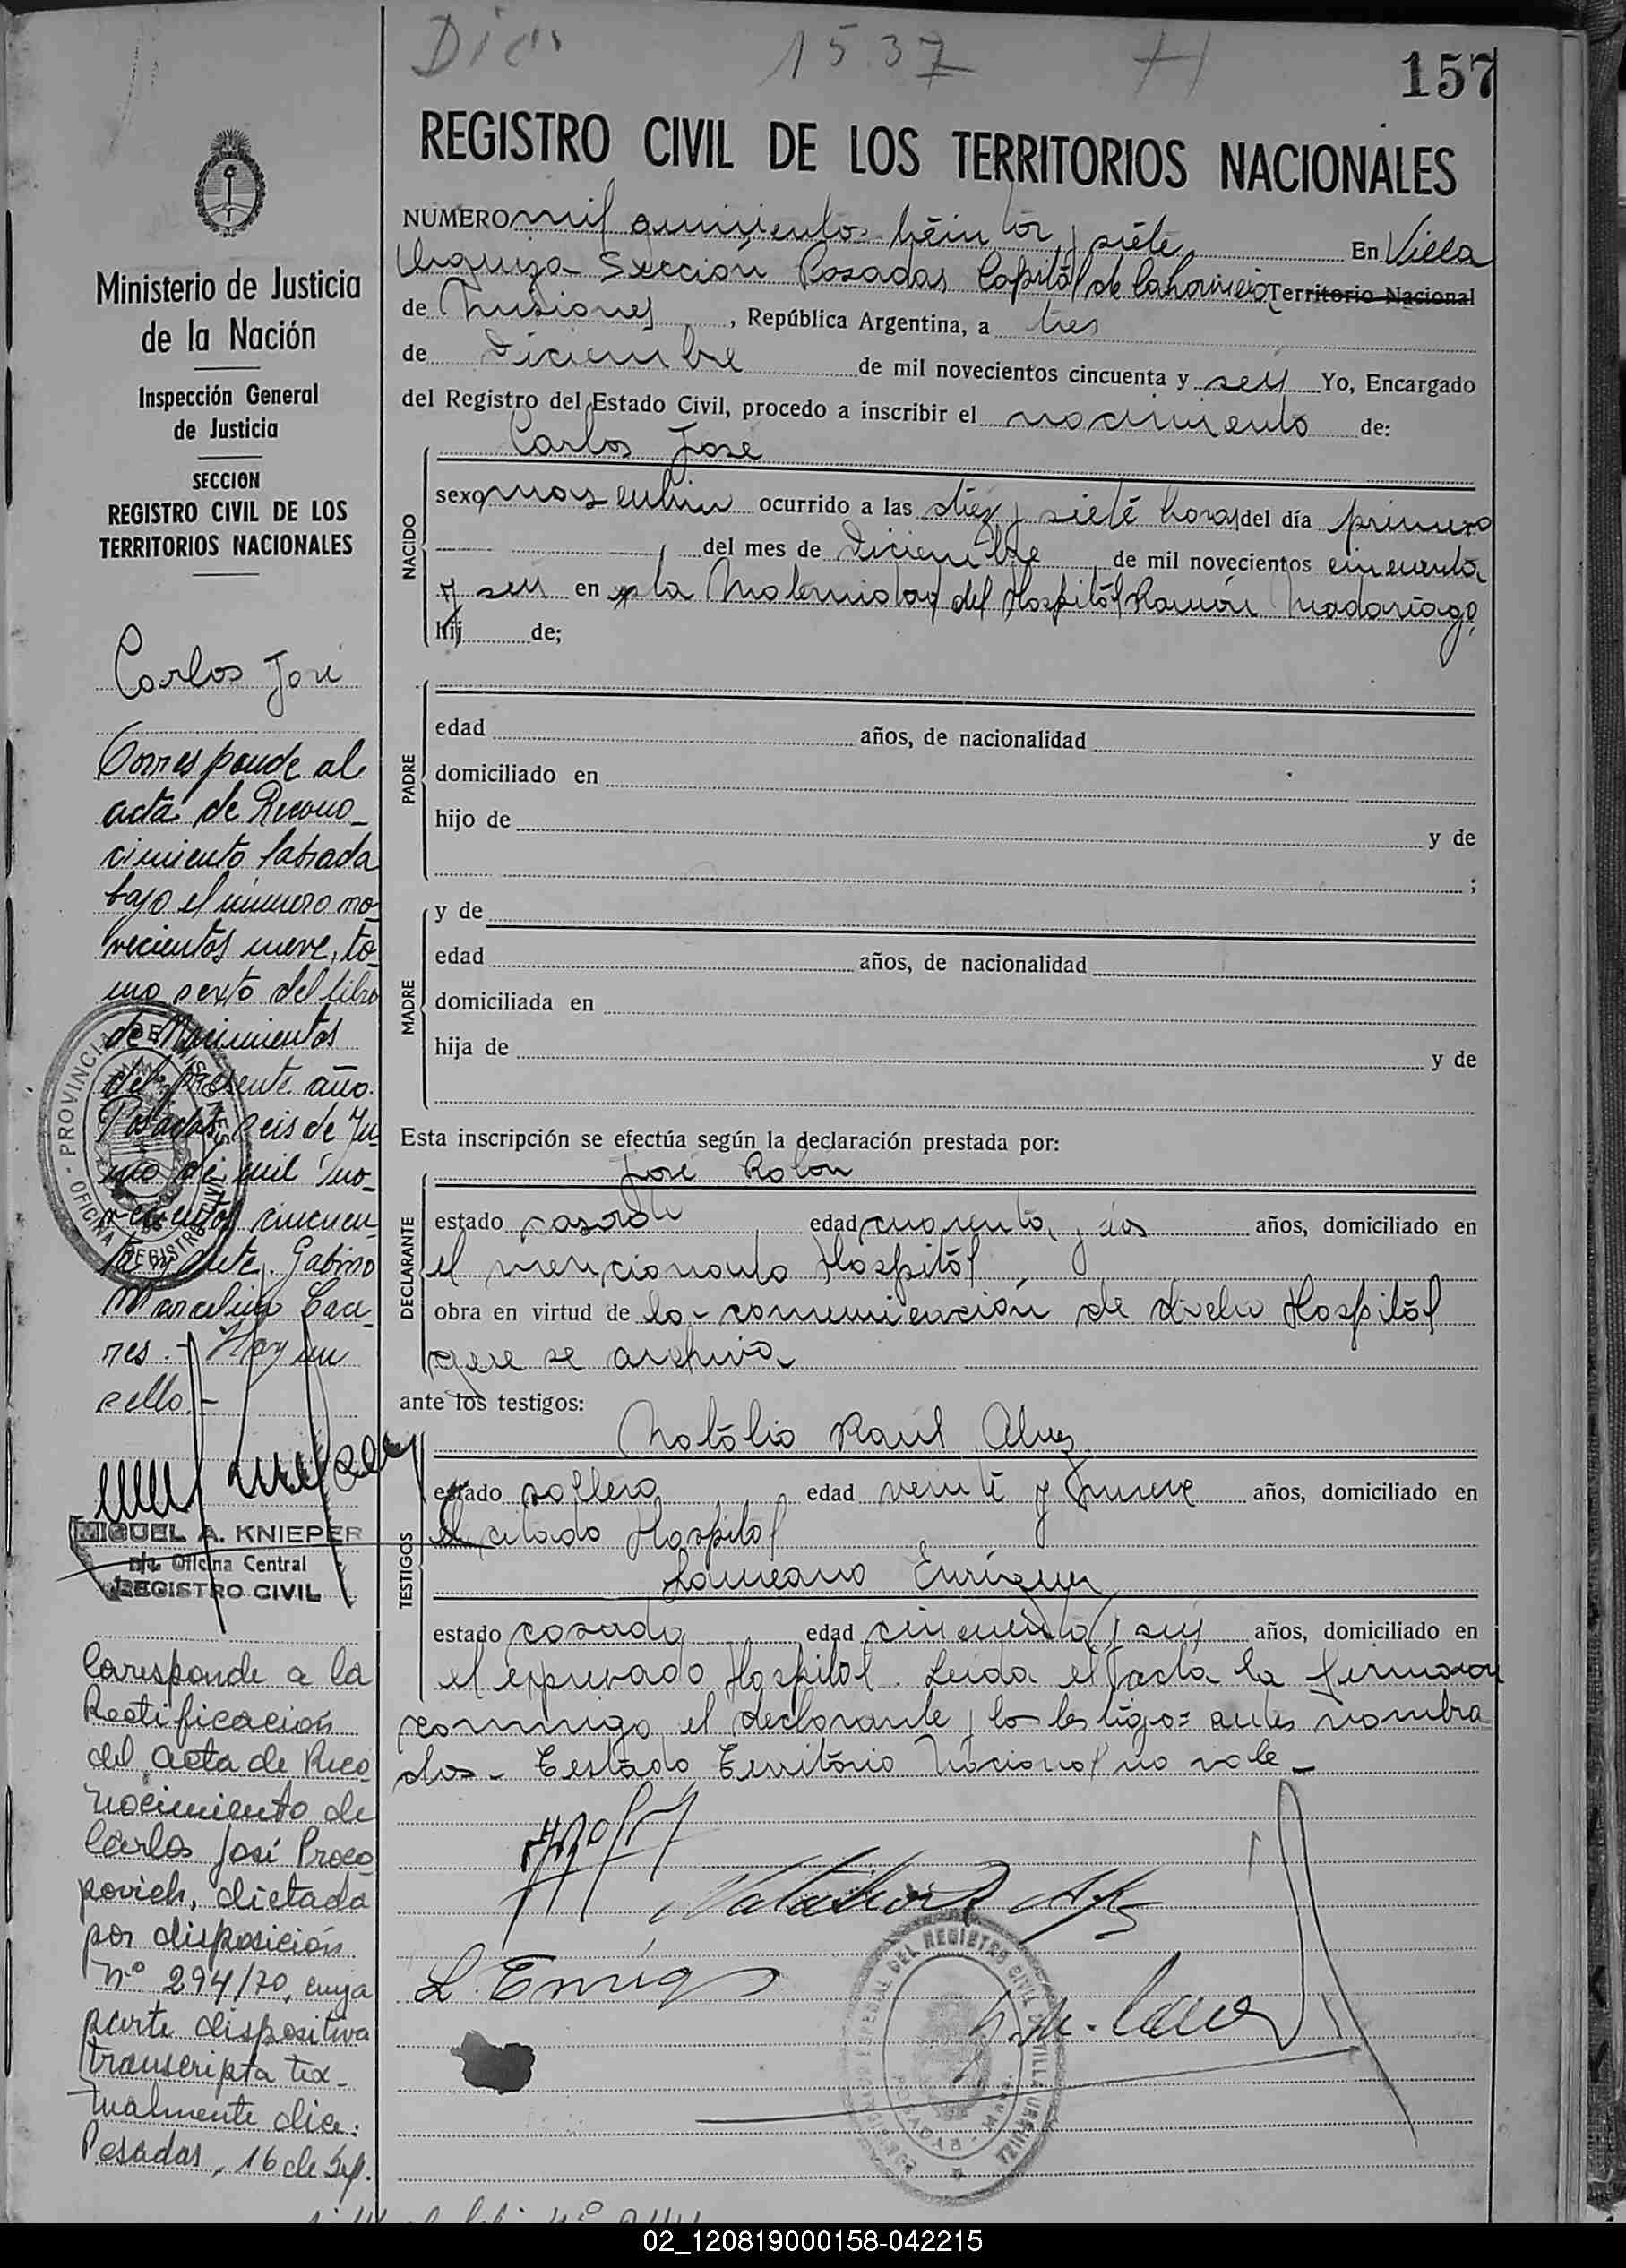 Dic. 1537 H
157
REGISTRO CIVIL DE LOS TERRITORIOS NACIONALES
NUMERO mil quiniento veinte y siete En Villa
Urquiza Sección Posadas Capital de la Provincia Territorio Nacional
de Misiones, República Argentina, a tres
de Diciembre de mil novecientos cincuenta y seis Yo, Encargado
del Registro del Estado Civil, procedo a inscribir el nacimiento de:
Carlos José
NACIDO
sexo masculino ocurrido a las diez y siete horas del día primero
del mes de Diciembre de mil novecientos cincuenta
y seis en la Maternidad del Hospital Ramón Madariaga,
hij de;
PADRE
edad años, de nacionalidad
domiciliado en
hijo de y de
;
MADRE
y de
edad años, de nacionalidad
domiciliada en
hija de y de
Esta inscripción se efectúa según la declaración prestada por:
José Rolón
DECLARANTE
estado casado edad cuarenta y dos años, domiciliado en
el mencionado Hospital
obra en virtud de la comunicación de dicho Hospital
que se archiva
ante los testigos:
Natalio Raúl Alvez
TESTIGOS
estado soltero edad veinte y nueve años, domiciliado en
el citado Hospital
Laureano Enriquez
estado casado edad cincuenta y seis años, domiciliado en
el expresado Hospital. Leida el acta la firmaron
conmigo el declarante y los testigos antes nombra
dos - Testado Territorio Nacional no vale -
L. Enriq
Ministerio de Justicia
de la Nación
Inspección General
de Justicia
SECCION
REGISTRO CIVIL DE LOS
TERRITORIOS NACIONALES
Carlos José
Corresponde al
acta de Recono-
cimiento labrada
bajo el número no-
vecientos nueve, to-
mo sexto del libro
de Nacimientos
del presente año.
Posadas, seis de Ju
nio de mil no-
vecientos cincuen
ta y siete. Gabino
Marcelino Cace
res. - Hay un
sello. -
PROVINCIA DE MISIONES
OFICINA REGISTRO CIVIL
MIGUEL A. KNIEPER
Oficina Central
REGISTRO CIVIL
Corresponde a la
Rectificación
del acta de Reco
nocimiento de
Carlos José Proco
povich, dictada
por disposición
Nº 294/70, cuya
parte dispositiva
transcripta tex-
tualmente dice:
Posadas, 16 de Sep.
02_120819000158-042215